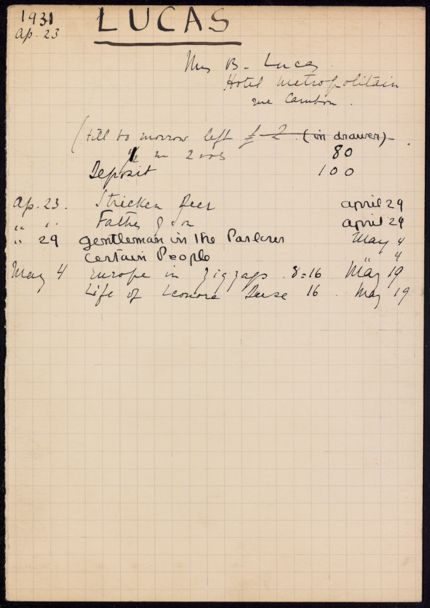 1931
Ap. 23
LUCAS
Mrs B. Lucas
Hotel Metropolitain
rue Cambon.
(till to morrow left £ 2. (in drawer)
2 vols 80
Deposit 100
Ap. 23. Stricken Deer april 29
" " Father & Son april 29
" 29 gentleman in the Parlour May 4
Certain People " 4
May 4 Europe in Zigzags. 8=16 May 19
Life of Leonora Duse 16 May 19